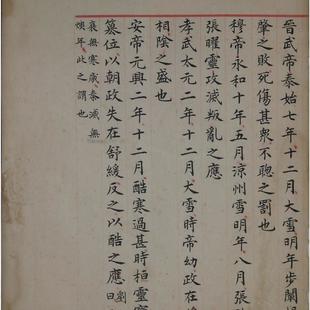 晉武帝泰始七年十二月大雪明年步闡楊
肇之敗死傷甚衆不聰之罰也
穆帝永和十年五月涼州雪明年八月張
張瓘靈攻滅叛亂之應
孝武太元二年十二月大雪時帝幼政在
相陰之盛也
安帝元興二年十二月酷寒過甚時桓靈
篡位以朝政失在舒緩反之以酷之應
劉
曰
衰無寒歲秦滅無
燠年此之謂也